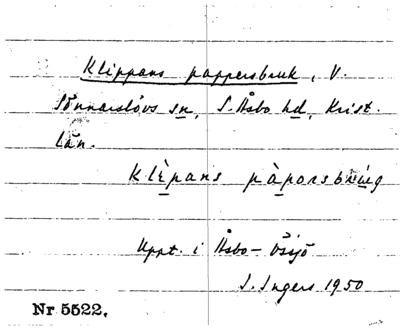 Klippans pappersbruk, V.
Sönnarslövs sn, S. Åsbo hd, Krist.
län.
Klìpans pàporsbrúg
Uppt. i Åsbo-Össjö
I. Ingers 1950
Nr 5522.